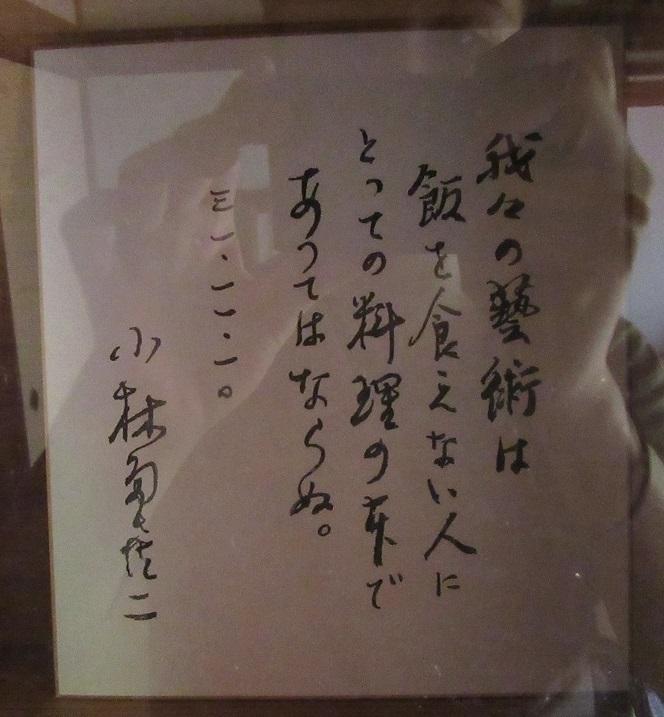 我々の藝術は
飯を食えない人に
とっての料理の本で
あってはならぬ。
三一・一一・一。
小林多喜二